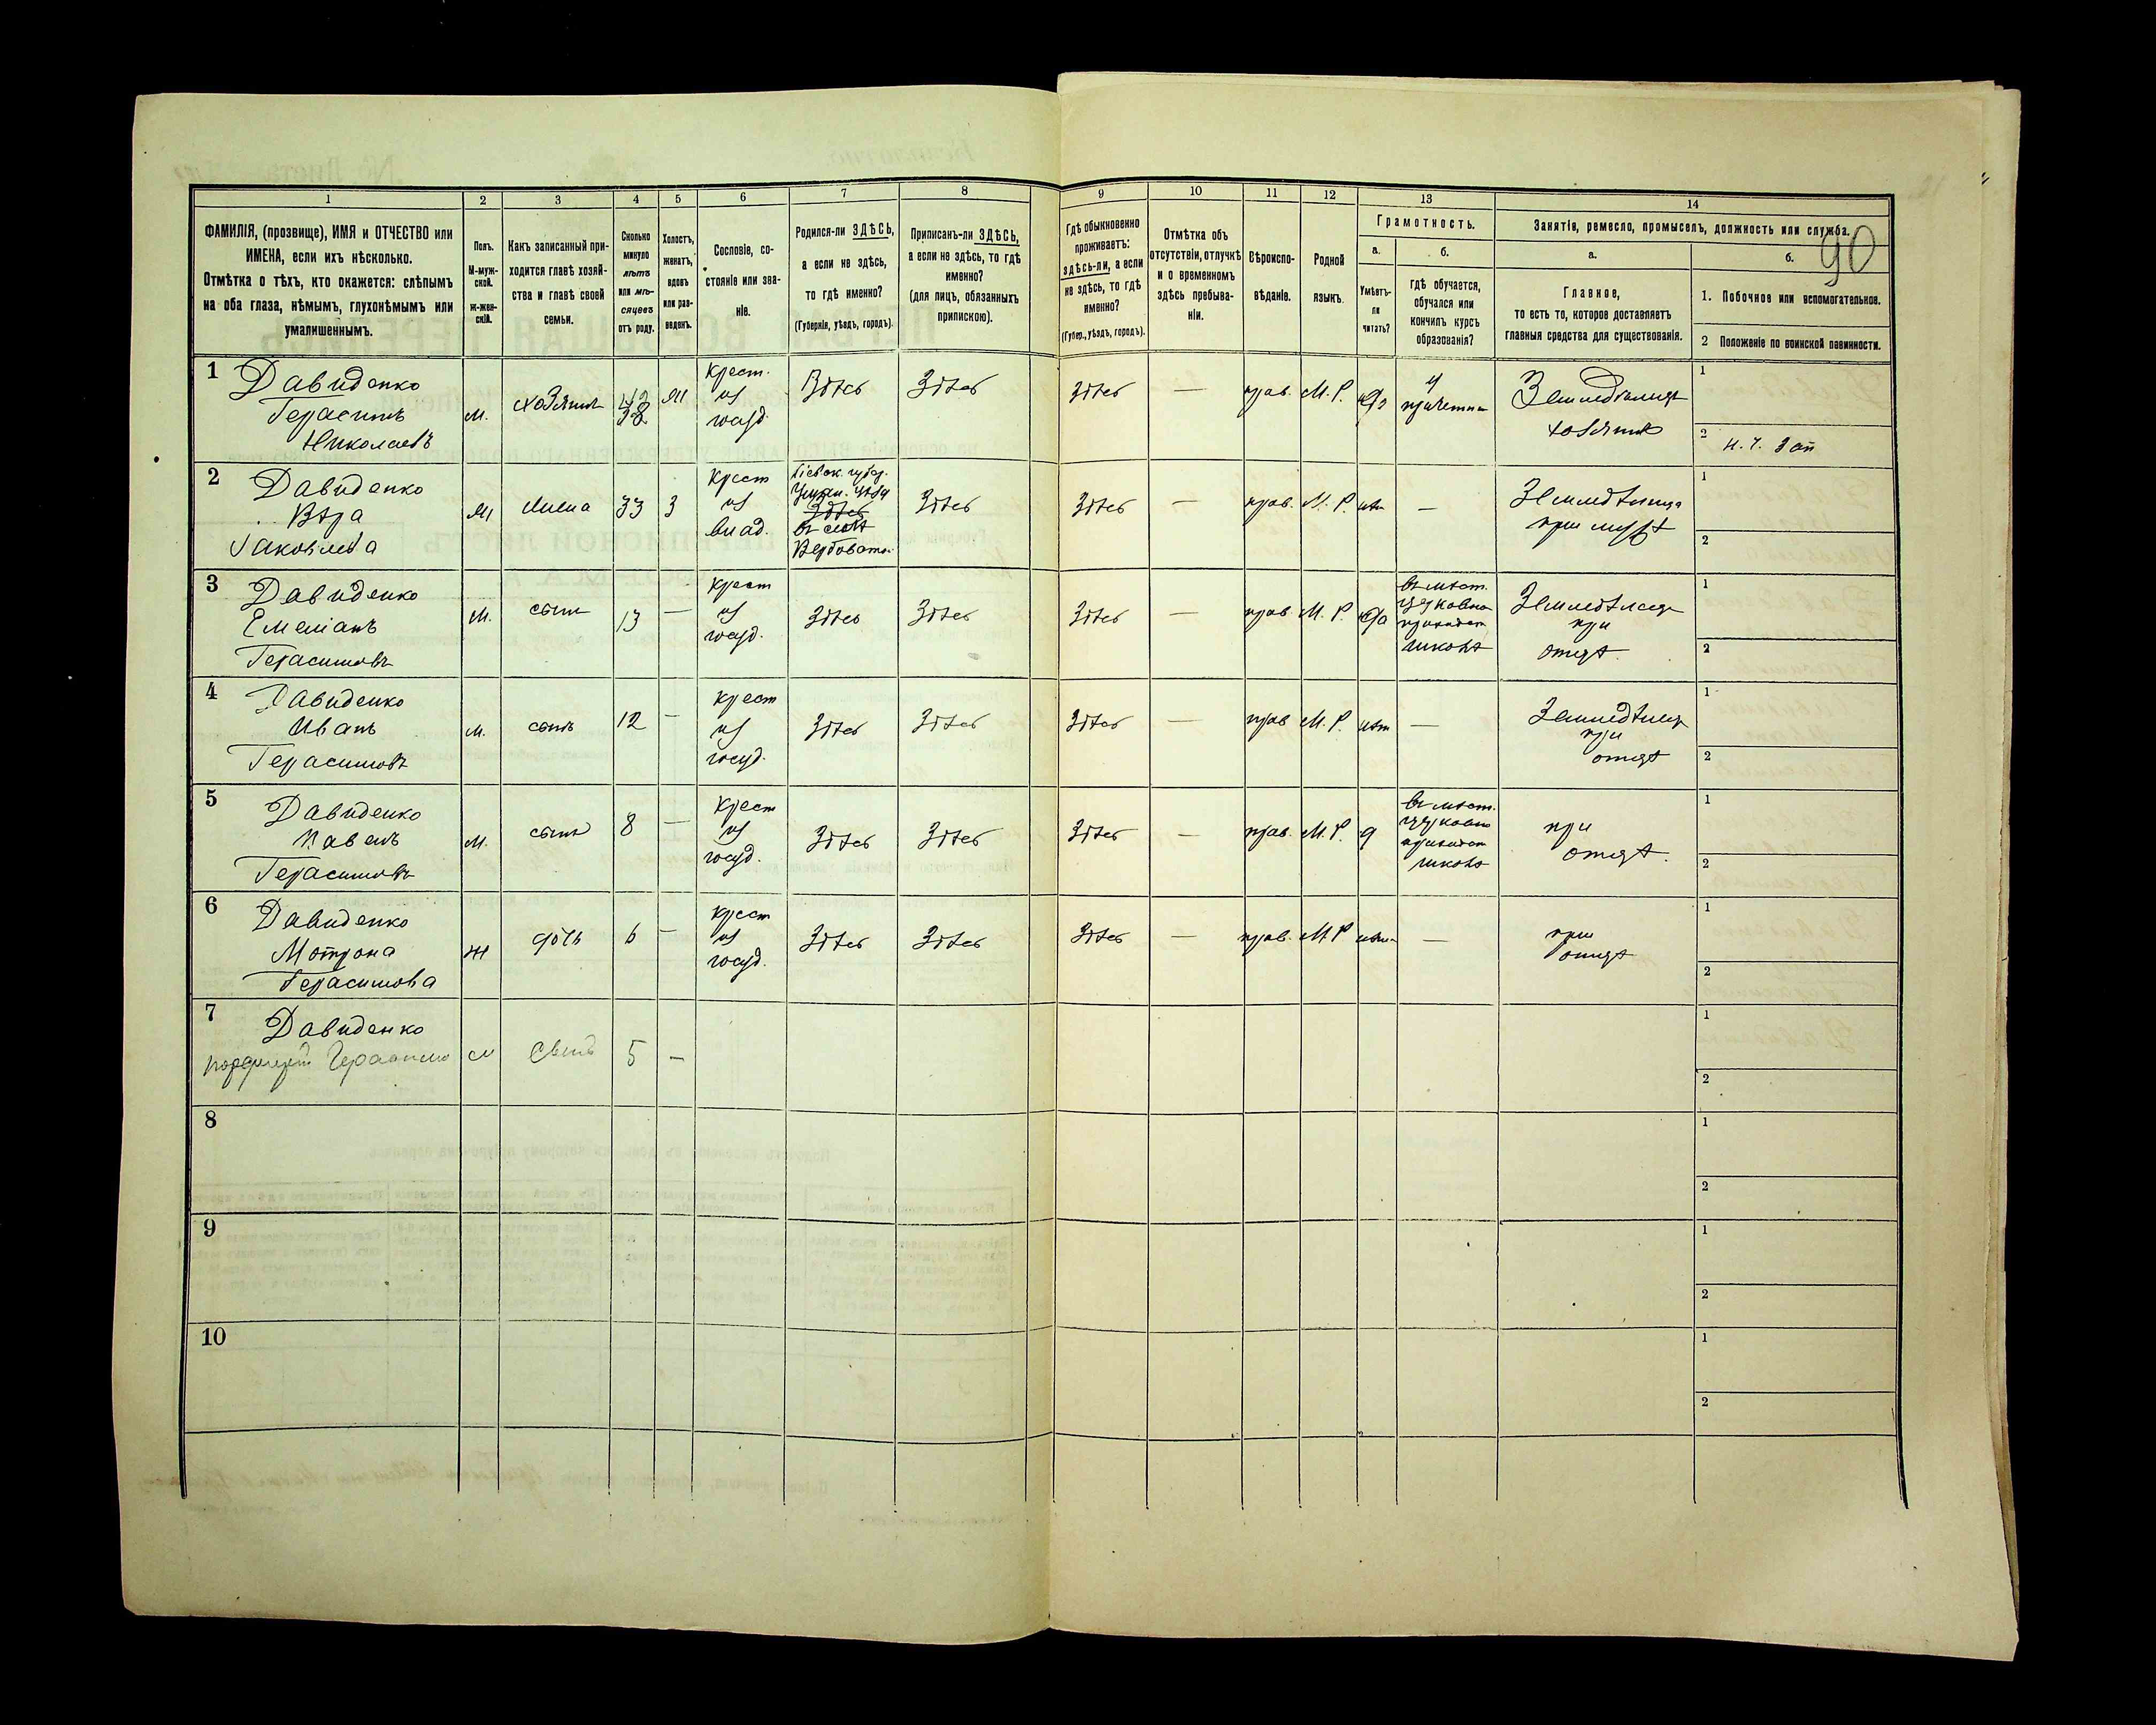 90
1
2
3
4
5
6
7
8
9
10
11
12
13
14
ФАМИЛІЯ, (прозвище), ИМЯ и ОТЧЕСТВО или
ИМЕНА, если ихъ нѣсколько.
Отмѣтка о тѣхъ, кто окажется: слѣпымъ
на оба глаза, нѣмымъ, глухонѣмымъ или
умалишеннымъ.
Полъ.
М-муж-
ской.
ж-жен-
скій.
Какъ записанный при-
ходится главѣ хозяй-
ства и главѣ своей
семьи.
Сколько
минуло
лѣтъ
или мѣ-
сяцевъ
отъ роду.
Холостъ,
женатъ,
вдовъ
или раз-
веденъ.
Сословіе, со-
стояніе или зва-
ніе.
Родился-ли ЗДѢСЬ,
а если не здѣсь,
то гдѣ именно?
(Губернія, уѣздъ, городъ).
Приписанъ-ли ЗДѢСЬ,
а если не здѣсь, то гдѣ
именно?
(для лицъ, обязанныхъ
припискою).
Гдѣ обыкновенно
проживаетъ:
здѣсь-ли, а если
не здѣсь, то гдѣ
именно?
(Губер., уѣздъ, городъ).
Отмѣтка объ
отсутствіи, отлучкѣ
и о временномъ
здѣсь пребыва-
ніи.
Вѣроиспо-
вѣданіе.
Родной
языкъ.
Грамотность.
а.
Умѣетъ-
ли
читать?
б.
гдѣ обучается,
обучался или
кончилъ курсъ
образованія?
Занятіе, ремесло, промыселъ, должность или служба.
а.
Главное,
то есть то, которое доставляетъ
главныя средства для существованія.
б.
1. Побочное или вспомогательное.
2 Положеніе по воинской повинности.
1
Давиденко
Герасимъ
Николаевъ
м.
хозяинъ
42
38
Крест.
из
госуд.
Здѣсь
Здѣсь
Здѣсь
—
прав.
М. Р.
да
у
Земледѣлецъ
хозяинъ
1
2
2
Давиденко
Вѣра
Яковлева
жена
33
з
Крест
из
влад.
Кіевск. губер.
Уман. уѣзд
Здѣсь
въ селѣ
Здѣсь
Здѣсь
—
прав.
М. Р.
нѣт
—
Земледѣлица
при мужѣ
1
2
3
Давиденко
Емеліанъ
Герасимовъ
м.
сынъ
13
—
Крест
из
госуд.
Здѣсь
Здѣсь
Здѣсь
—
прав.
М. Р.
да
въ мѣст.
церковно
приходск
школѣ
Земледѣлецъ
при
отцѣ.
1
2
4
Давиденко
Иванъ
Герасимовъ
м.
сынъ
12
—
Крест
из
госуд.
Здѣсь
Здѣсь
Здѣсь
—
прав
М. Р.
нѣт
—
Земледѣлец
при
отцѣ
1
2
5
Давиденко
Павелъ
Герасимовъ
м.
сынъ
8
—
Крест
из
госуд.
Здѣсь
Здѣсь
Здѣсь
—
прав.
М. Р.
д
въ мѣст.
церковно
приходск
школѣ
при
отцѣ.
1
2
6
Давиденко
Мотрона
Герасимова
ж
дочь
6
—
Крест
из
госуд.
Здѣсь
Здѣсь
Здѣсь
—
прав.
М Р
нѣт
—
при
отцѣ
1
2
7
Давиденко
м
сынъ
5
—
1
2
8
1
2
9
1
2
10
1
2